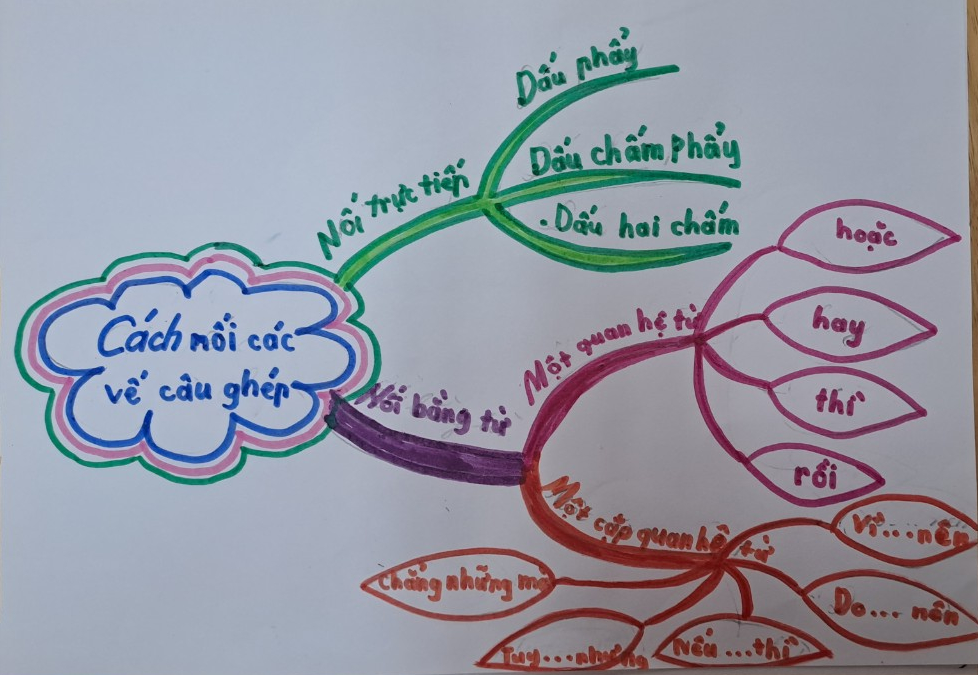 Cách nối các
vế câu ghép
Nối trực tiếp
Dấu phẩy
Dấu chấm phẩy
. Dấu hai chấm
Nối bằng từ
Một quan hệ từ
hoặc
hay
thì
rồi
Một cặp quan hệ từ
Vì...nên
Do... nên
Nếu ...thì
Tuy...nhưng
Chẳng những mà